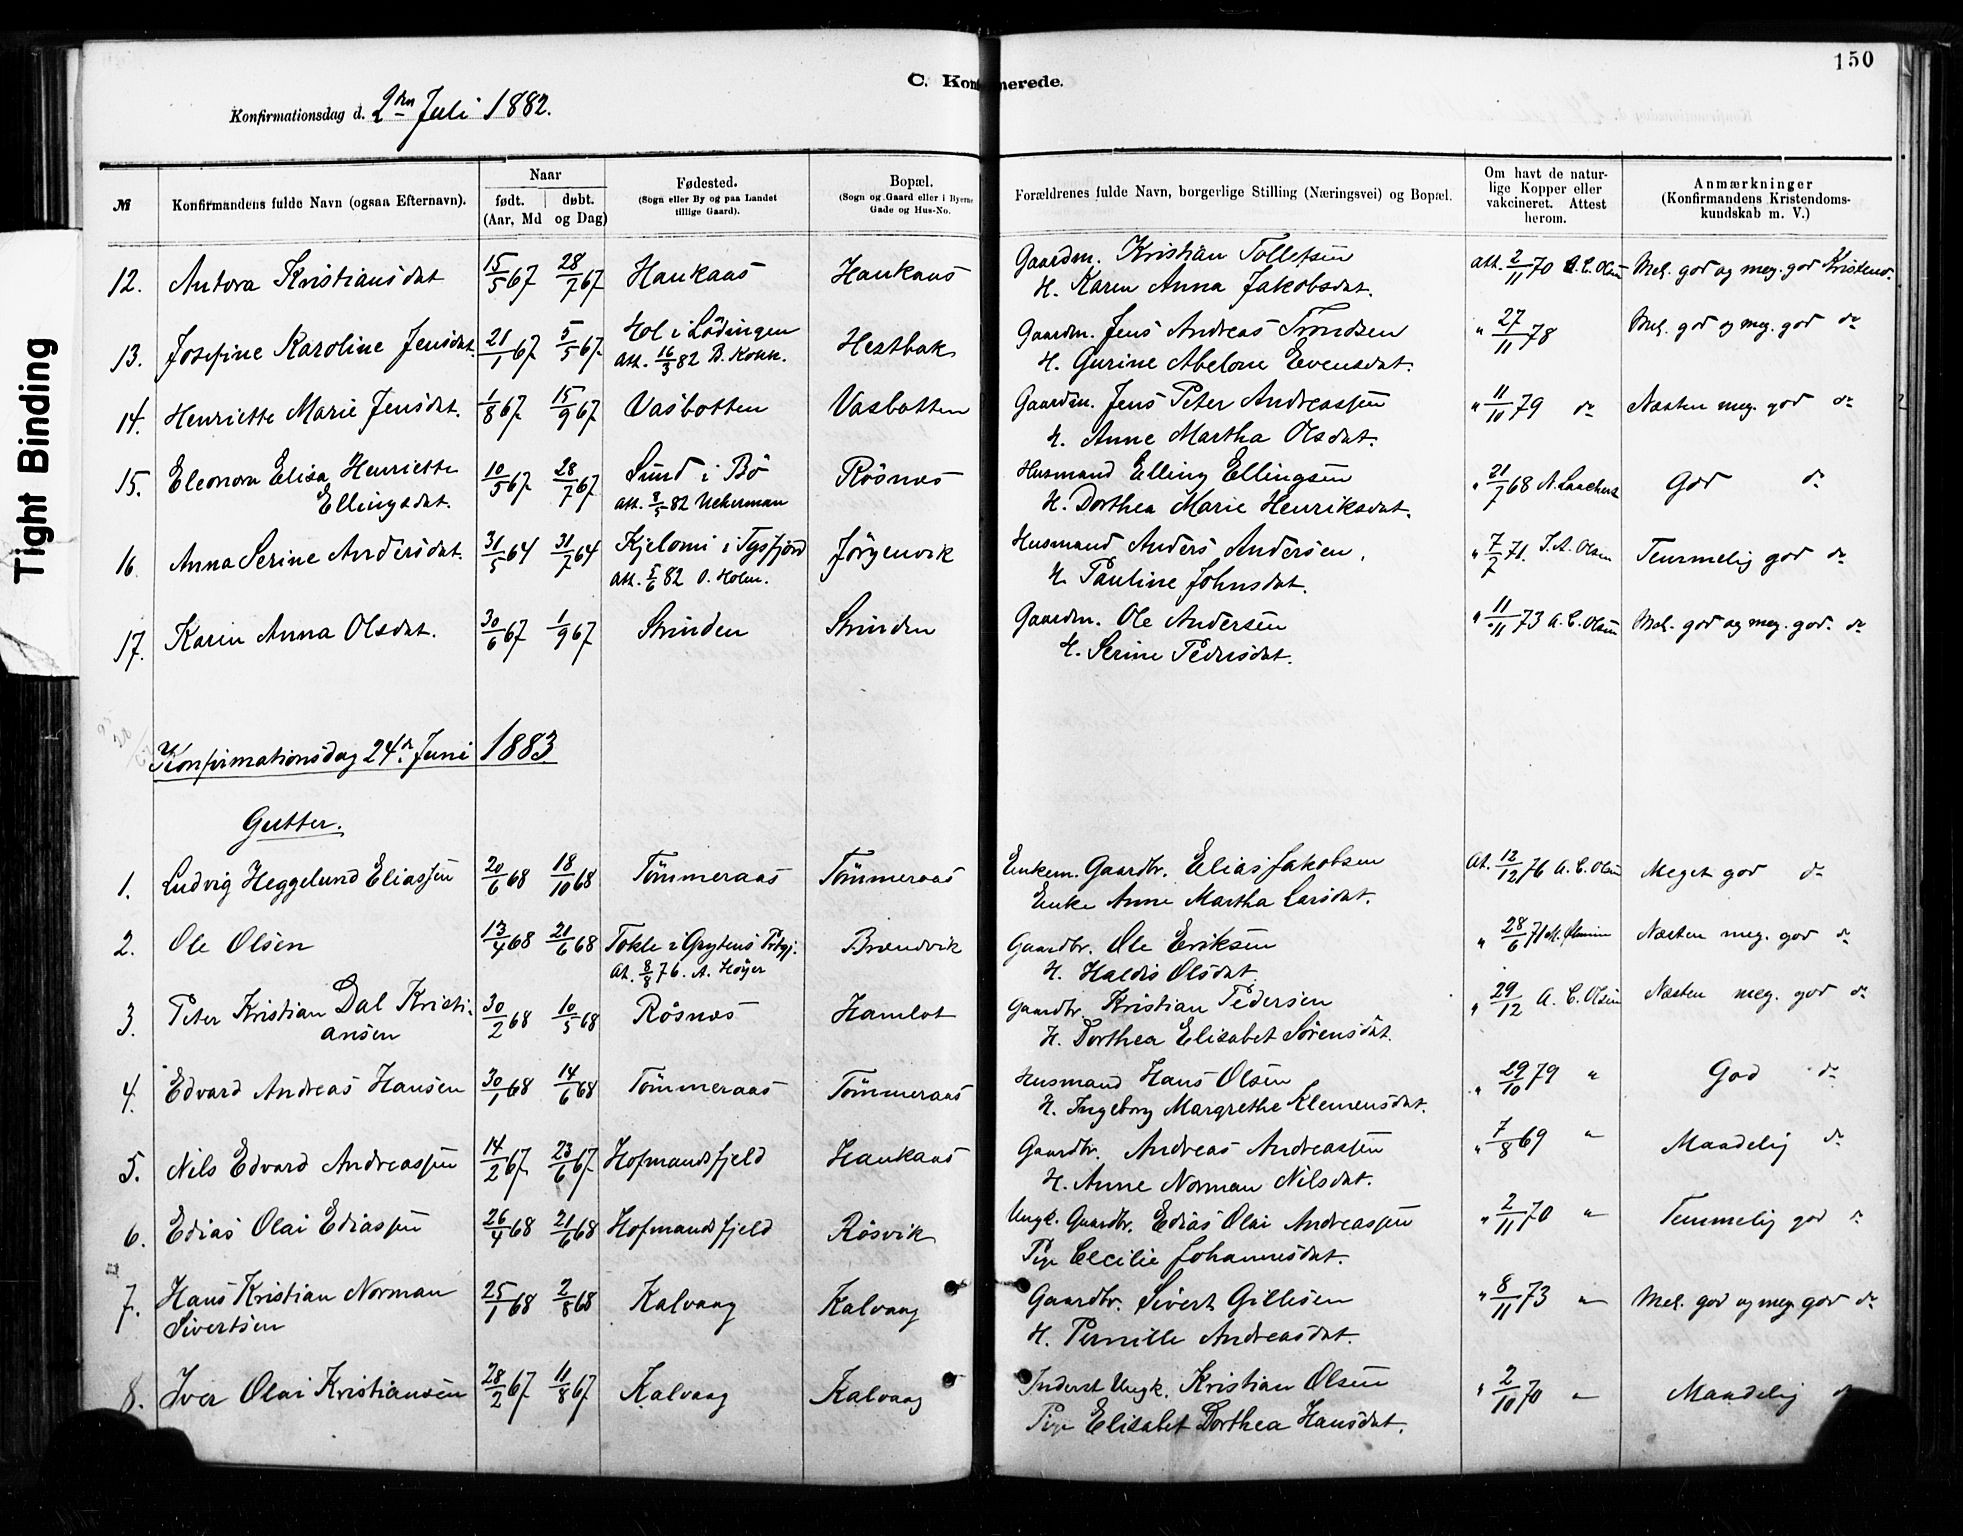 150
C. Konfirmerede.
Konfirmationsdag d. 2den Juli 1882.
№
Konfirmandens fulde Navn (ogsaa Efternavn).
Naar
født. døbt.
(Aar, Md og Dag)
Fødested.
(Sogn eller By og paa Landet
tillige Gaard).
Bopæl.
(Sogn og Gaard eller i Byerne
Gade og Hus-No.
Forældrenes fulde Navn, borgerlige Stilling (Næringsvei) og Bopæl.
Om havt de natur-
lige Kopper eller
vakcineret. Attest
herom.
Anmærkninger
(Konfirmandens Kristendoms-
kundskab m. V.)
12. Antora Kristiansdat 15/5 67 28/7 67 Haukaas Haukaas Gaardm. Kristian Tollefsen att. 2/11 70 A. C. Olsen Mel. god og meg. god Kristend.
H. Karen Anna Jakobsdat.
13. Josefine Karoline Jensdat. 21/1 67 5/5 67. Hol i Lödingen Hestbak Gaardm. Jens Andreas Trondsen " 27/11 78 Mel. god og meg. god do
att. 16/3 82 B. Kokk. H. Gurine Abelone Evensdat.
14. Henriette Marie Jensdat. 1/8 67 15/9 67 Vasbotten Vasbotten Gaardm. Jens Peter Andreassen " 11/10 79 do Næsten meg. god do
H. Anne Martha Olsdat.
15. Eleonora Elisa Henriette 10/5 67 28/7 67 Sund i Bö Rösnæs Husmand Elling Ellingsen " 21/7 68 God do
Ellingsdat. att. 8/5 82 Uckerman H. Dorthea Marie Henriksdat.
16 Anna Serine Andersdat. 31/5 64 31/7 64 Kjelomi i Tysfjord Jörgenvik Husmand Anders Andersen. " 7/7 71. J. A. Olsen Temmelig god do
att. 5/6 82 O. Holm. H. Pauline Johnsdat.
17. Karin Anna Olsdat. 30/6 67 1/9 67 Strinden Strinden Gaardm. Ole Andersen " 11/11 73 A. C. Olsen Mel. god og meg. god. do
H. Serine Pedersdat.
Konfirmationsdag 24de Juni 1883
Gutter.
1. Ludvig Heggelund Eliassen 20/6 68 18/10 68 Tömmeraas Tömmeraas Enkem. Gaardbr. Elias Jakobsen At. 12/12 76 A. C. Olsen Meget god do
Enke Anne Martha Larsdat.
2. Ole Olsen 13/4 68 21/6 68 Tokle i Grytens Prstgj. Brændvik Gaardbr. Ole Eriksen " 28/6 71 Næsten meg. god do
At. 8/8 76. A. Höyer H. Haldis Olsdat
3. Peter Kristian Dal Kristi- 30/2 68 10/5 68 Rösnæs Hamlot Gaardbr. Kristian Pedersen " 29/12 A. C. Olsen Næsten meg. god do
ansen H. Dorthea Elisabet Sörensdat.
4. Edvard Andreas Hansen 30/1 68 14/6 68 Tömmeraas Tömmeraas Husmand Hans Olsen " 29/10 79 " God do
H. Ingeborg Margrethe Klemensdat.
5. Nils Edvard Andreassen 14/2 67 23/6 67. Hofmandsfjeld Haukaas Gaardbr. Andreas Andreassen " 7/8 69 " Maadelig do
H. Anne Norman Nilsdat.
6. Edias Olai Ediassen 26/4 68 21/6 68 Hofmandsfjeld Rösvik Ungk. Gaardbr. Edias Olai Andreassen " 2/11 70 " Temmelig god do
Pige Cecilie Johannesdat.
7. Hans Kristian Norman 25/1 68 2/8 68 Kalvaag Kalvaag Gaardbr. Sivert Gillisen " 8/11 73 " Mel. god og meg. god do
Sivertsen H. Pernille Andreasdat.
8. Iver Olai Kristiansen 28/2 67. 11/8 67 Kalvaag Kalvaag Inderst Ungk. Kristian Olsen " 2/10 70 " Maadelig do
Pige Elisabet Dorthea Hansdat.
Tight Binding